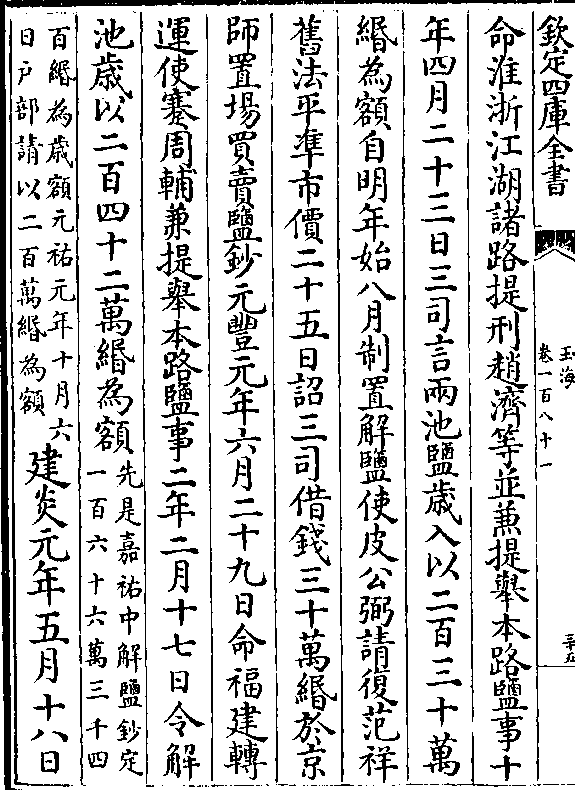 欽定四庫全書
玉海
卷一百八十一
命淮浙江湖諸路提刑趙濟等並兼提舉本路鹽事十
年四月二十三日三司言兩池鹽歲入以二百三十萬
緡為額自明年始八月制置解鹽使皮公弼請復范祥
舊法平準市價二十五日詔三司借錢三十萬緡於京
師置場買賣鹽鈔元豐元年六月二十九日命福建轉
運使蹇周輔兼提舉本路鹽事二年二月十七日令解
池歲以二百四十二萬緡為額先是嘉祐中解鹽鈔定
一百六十六萬三千四
百緡為歲額元祐元年十月六
日戶部請以二百萬緡為額建炎元年五月十八日